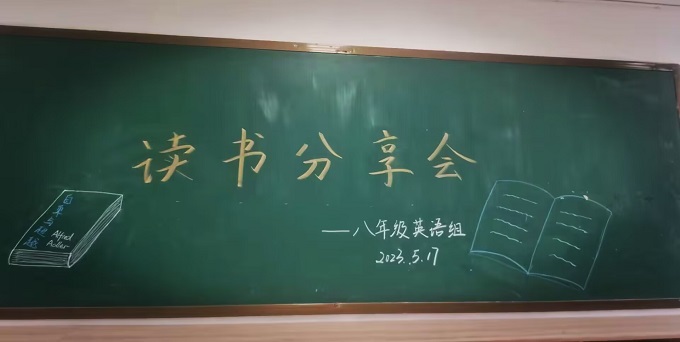 读书分享会
自卑与超越
Alfred
Adler
——八年级英语组
2023.5.17